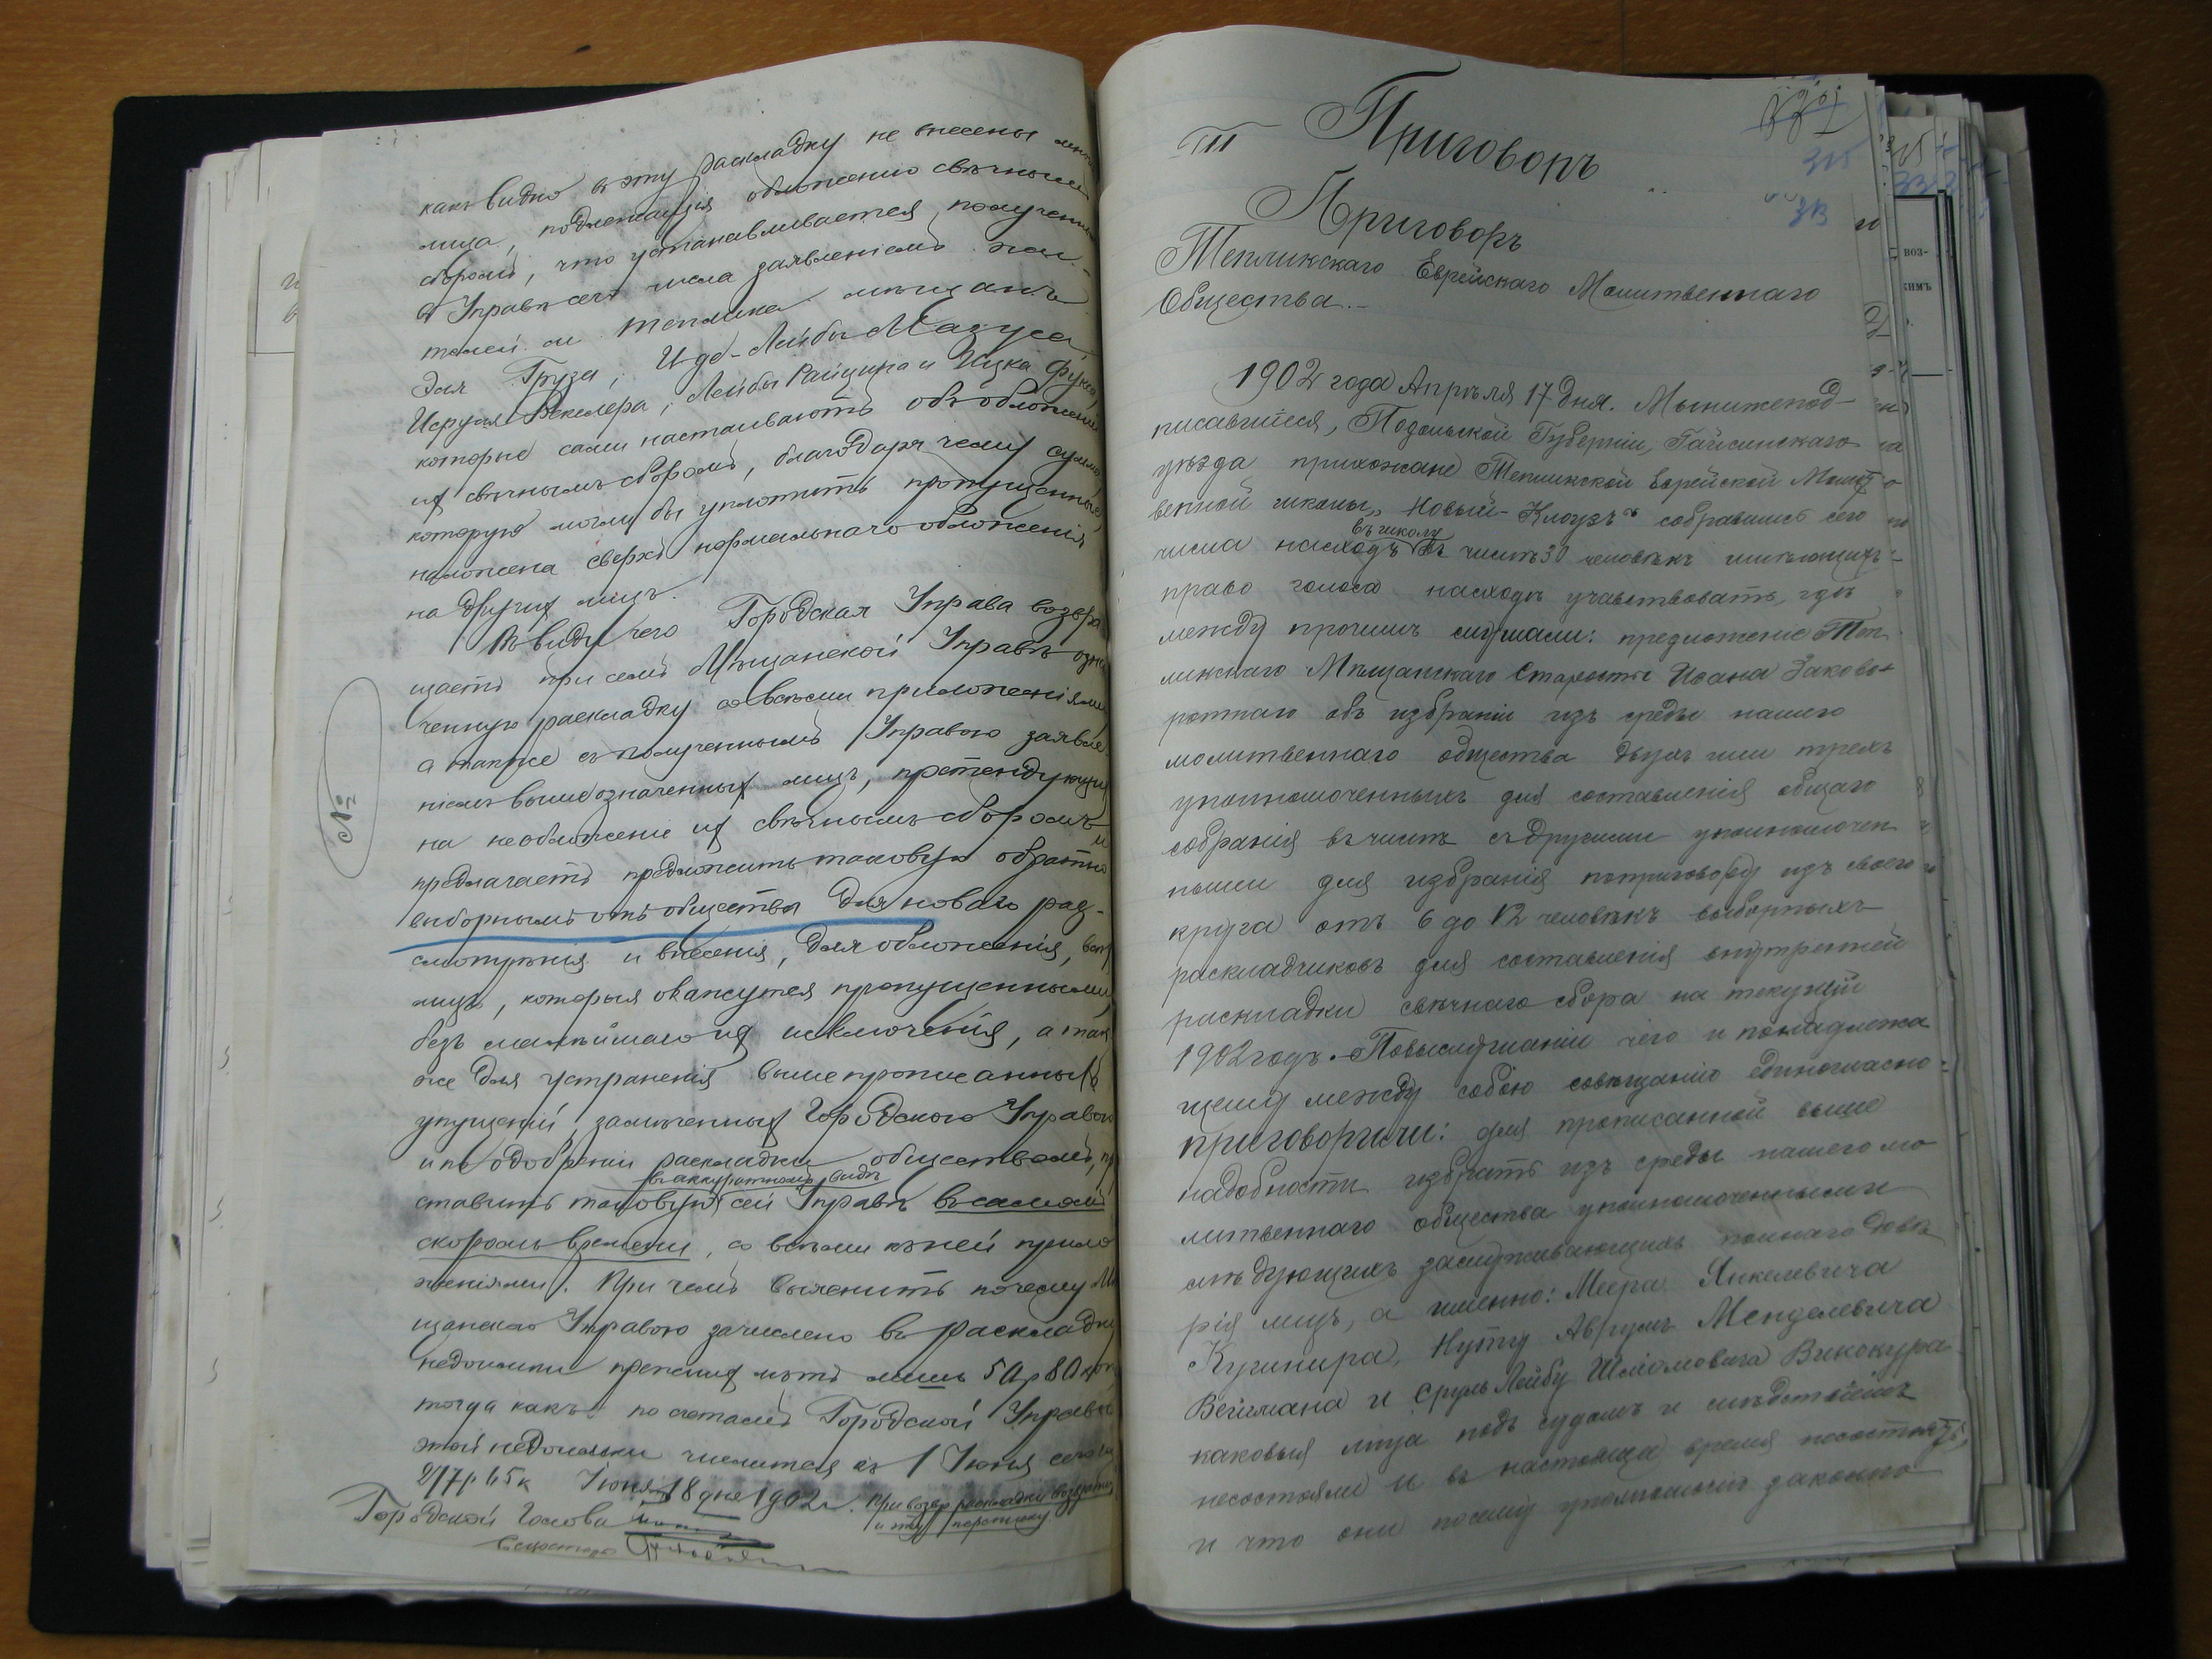 какъ видно въ эту раскладку не внесены
лица, подлежащія обложенію свѣчнымъ
сборомъ, что устанавливается
въ Управѣ сего числа заявленіемъ жи-
телей м. Теплика мѣщанъ
Груза, Лейбы Мазуса,
Исруля Векслера, Лейбы Райцина и Ицка Фукса
которые сами настаиваютъ объ обложеніи
ихъ свѣчнымъ сборомъ, благодаря чему сумма,
которую могли бы уплотить пропущенные,
наложена сверхъ нормальнаго обложенія
на другихъ лицъ.
Въ виду чего Городская Управа возвра
щаетъ при семъ Мѣщанской Управѣ озна
ченную раскладку со всѣми приложеніями
а также съ полученнымъ Управою заявле
ніемъ вышеозначенныхъ лицъ, претендующихъ
на необложеніе ихъ свѣчнымъ сборомъ и
предлагаетъ предложить таковую обратно
выборнымъ отъ общества для новаго раз-
смотрѣнія и внесенія, для обложенія, всѣхъ
лицъ, которыя окажутся пропущенными,
безъ малѣйшаго ихъ исключенія, а так
же для устраненія вышепрописанныхъ
упущеній, замѣченныхъ Городскою Управою
и по одобреніи раскладки обществомъ,
въ аккуратномъ видѣ
ставить таковую сей Управѣ въ самомъ
скоромъ времени, со всѣми къ ней прило
женіями. При чемъ выяснить почему Мѣ
щанскою Управою зачислено въ раскладку
недоимки прежнихъ лѣтъ лишь 50 р 80 коп,
тогда какъ по счетамъ Городской Управы
этой недоимки числится къ 1 Іюня сего
217 р 65 к Іюня 18 дня 1902 г. При возвр раскладки возвратить
и эту переписку.
Городской Голова
Секретарь
№
III Приговоръ
Приговоръ
Тепликскаго Еврейскаго Молитвеннаго
Общества.-
1902 года Апрѣля 17 дня. Мы нижепод-
писавшіеся, Подольской Губерніи, Гайсинскаго
уѣзда прихожане Тепликской Еврейской Молит
венной школы „Новый-Клоузъ“ собравшись сего
въ школу
числа на сходъ въ числѣ 30 человѣкъ имѣющихъ
право голоса на сходѣ участвовать, гдѣ
между прочимъ слушали: предложеніе Теп
ликскаго Мѣщанскаго Старосты Ивана Заково-
ротнаго объ избраніи изъ среды нашего
молитвеннаго общества двухъ или трехъ
уполномоченныхъ для составленія общаго
собранія въ числѣ съ другими уполномочен
ными для избранія по приговору изъ своего
круга отъ 6 до 12 человѣкъ выборныхъ
раскладчиковъ для составленія внутренней
раскладки свѣчнаго сбора на текущій
1902 годъ.- По выслушаніи чего и по надлежа
щему между собою совѣщанію единогласно
приговорили: для прописанной выше
надобности избрать изъ среды нашего мо
литвеннаго общества уполномоченными
слѣдующихъ заслуживающихъ полнаго довѣ
рія лицъ, а именно: Меера Янкелевича
Кушнира, Нуту Аврумъ Менделевича
Веймана и Сруль Лейбу Шліомовича Винокура
каковыя лица подъ судомъ и слѣдствіемъ
несостояли и въ настояще время несостоятъ,
и что они посему уполномочію законно